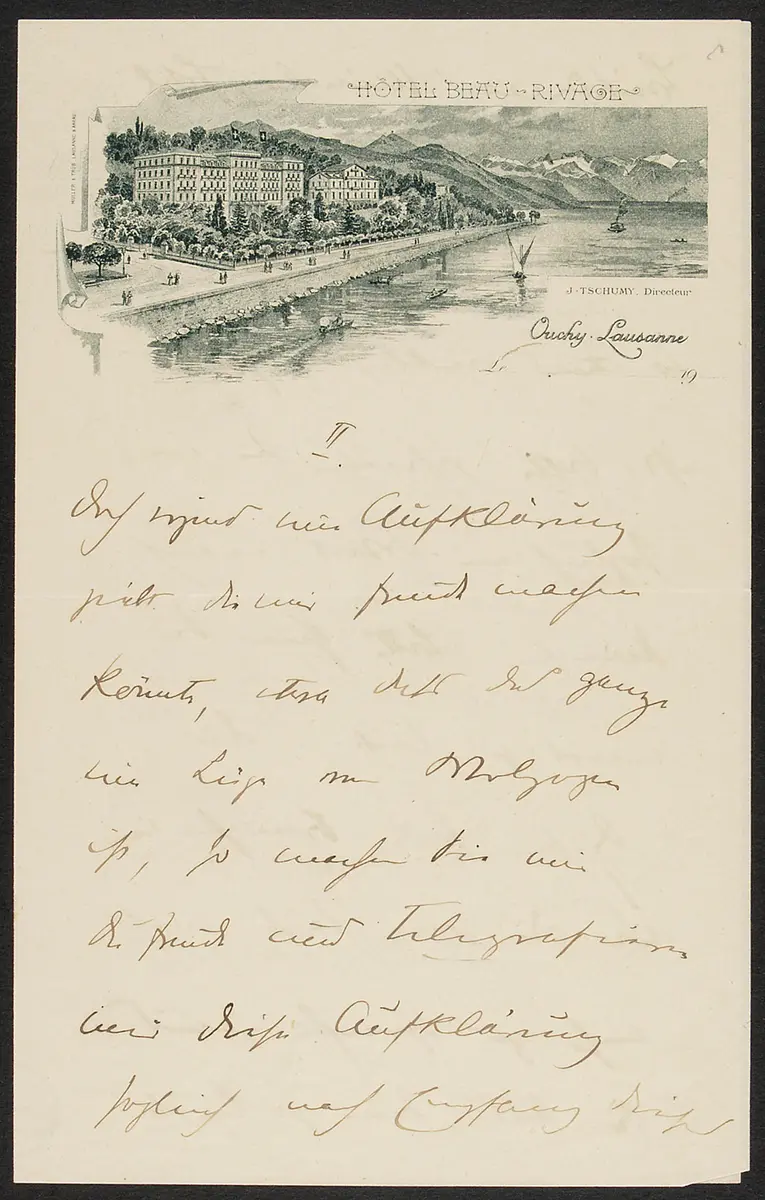 HÔTEL BEAU-RIVAGE
J. TSCHUMY. Directeur
Ouchy-Lausanne
Le 19
II.
doch irgend eine Aufklärung
gibt die mir Freude machen
könnte, etwa daß das ganze
eine Lüge von Wolzogen
ist, so machen Sie mir
die Freude und telegrafiren
mir diese Aufklärung
sogleich nach Empfang dieses